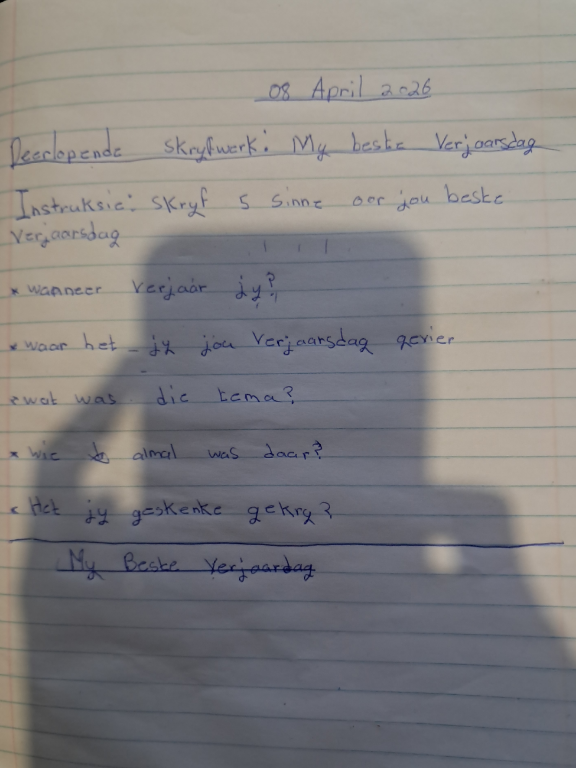 08 April 2026
Deerlopende skryfwerk: My beste Verjaarsdag
Instruksie: Skryf 5 sinne oor jou beste
verjaarsdag
* wanneer verjaar jy?
* waar het jy jou verjaarsdag gevier
* wat was die tema?
* wie almal was daar?
* Het jy geskenke gekry?
My Beste Verjaardag